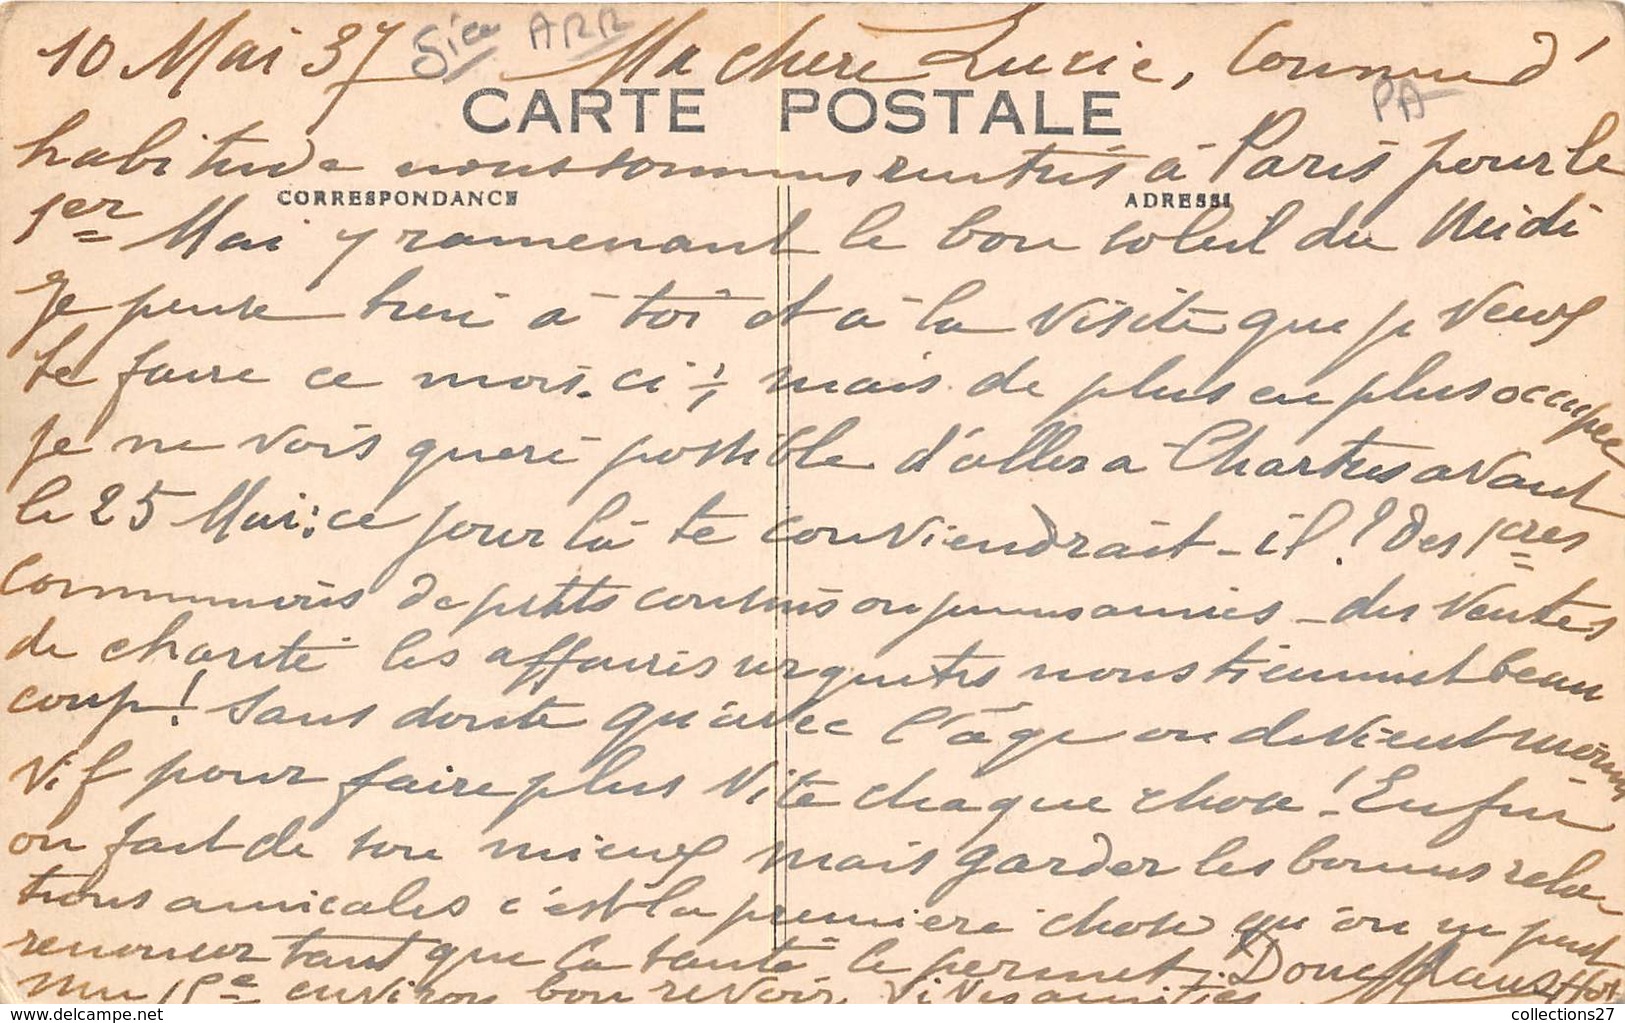 10 Mai 37 5ième ARR Ma chere Lucie, Comme d'
PA
CARTE POSTALE
habitude nous sommes rentrés à Paris pour le
CORRESPONDANCE ADRESSE
1er Mai y ramenant le bon soleil du Midi
Je pense bien à toi et à la visite que je veux
te faire ce mois-ci ; mais de plus en plus occupée
je ne vois guère possible d'aller à Chartres avant
le 25 Mai: ce jour là te conviendrait-il ? des 1ères
communions de petits cousins ou jeunes amies - des ventes
de charité les affaires urgentes nous tiennent beau
coup ! Sans doute qu'avec l'âge on devient moins
vif pour faire plus vite chaque chose ! Enfin
on fait de son mieux mais garder les bonnes rela
tions amicales c'est la première chose qu'on ne peut
renoncer tant que la santé le permet. Donc
environ bon revoir vives amitiés
collections27